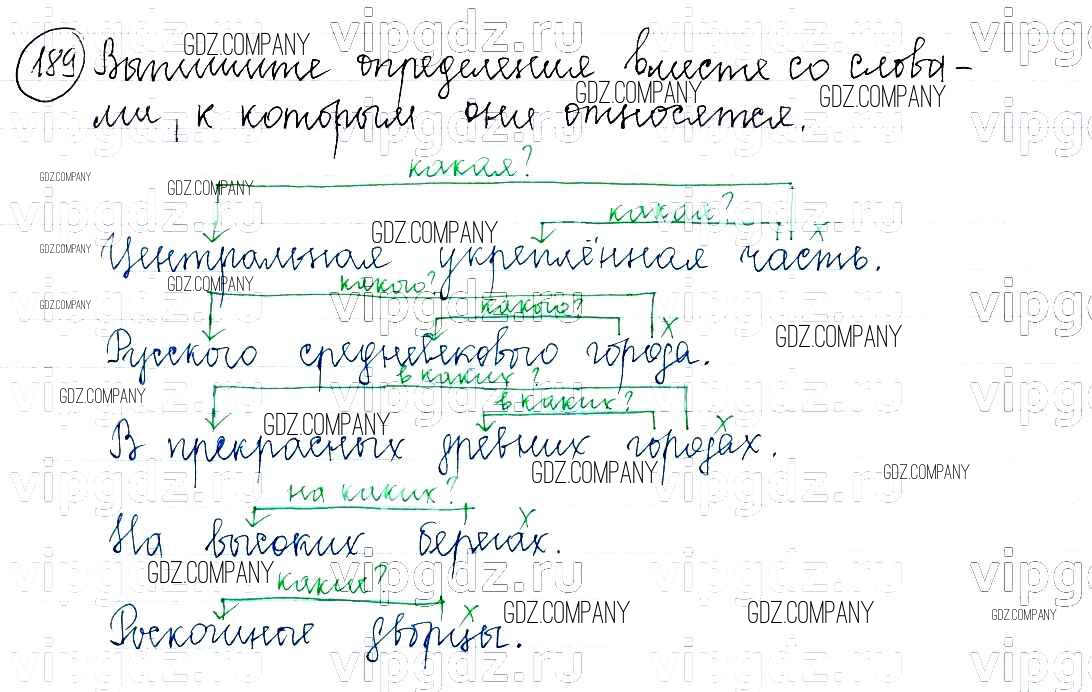 189 Выпишите определения вместе со слова-
ми, к которым они относятся.
какая?
какая?
Центральная укреплённая часть.
какого?
какого?
Русского средневекового города.
в каких?
в каких?
В прекрасных древних городах.
на каких?
На высоких берегах.
какие?
Роскошные дворцы.
GDZ.COMPANY
vipgdz.ru